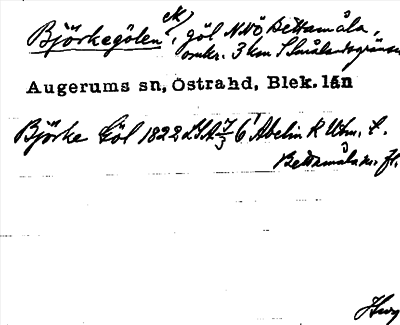 Björkegölen ek, göl NNÖ Bettamåla,
omkr. 3 km S Smålandsgränsen
Augerums sn, Östrahd, Blek. län
Björke Göl 1822 LSA 7/3 6¹ Abelin R Utm. t.
Bettamåla m. fl.